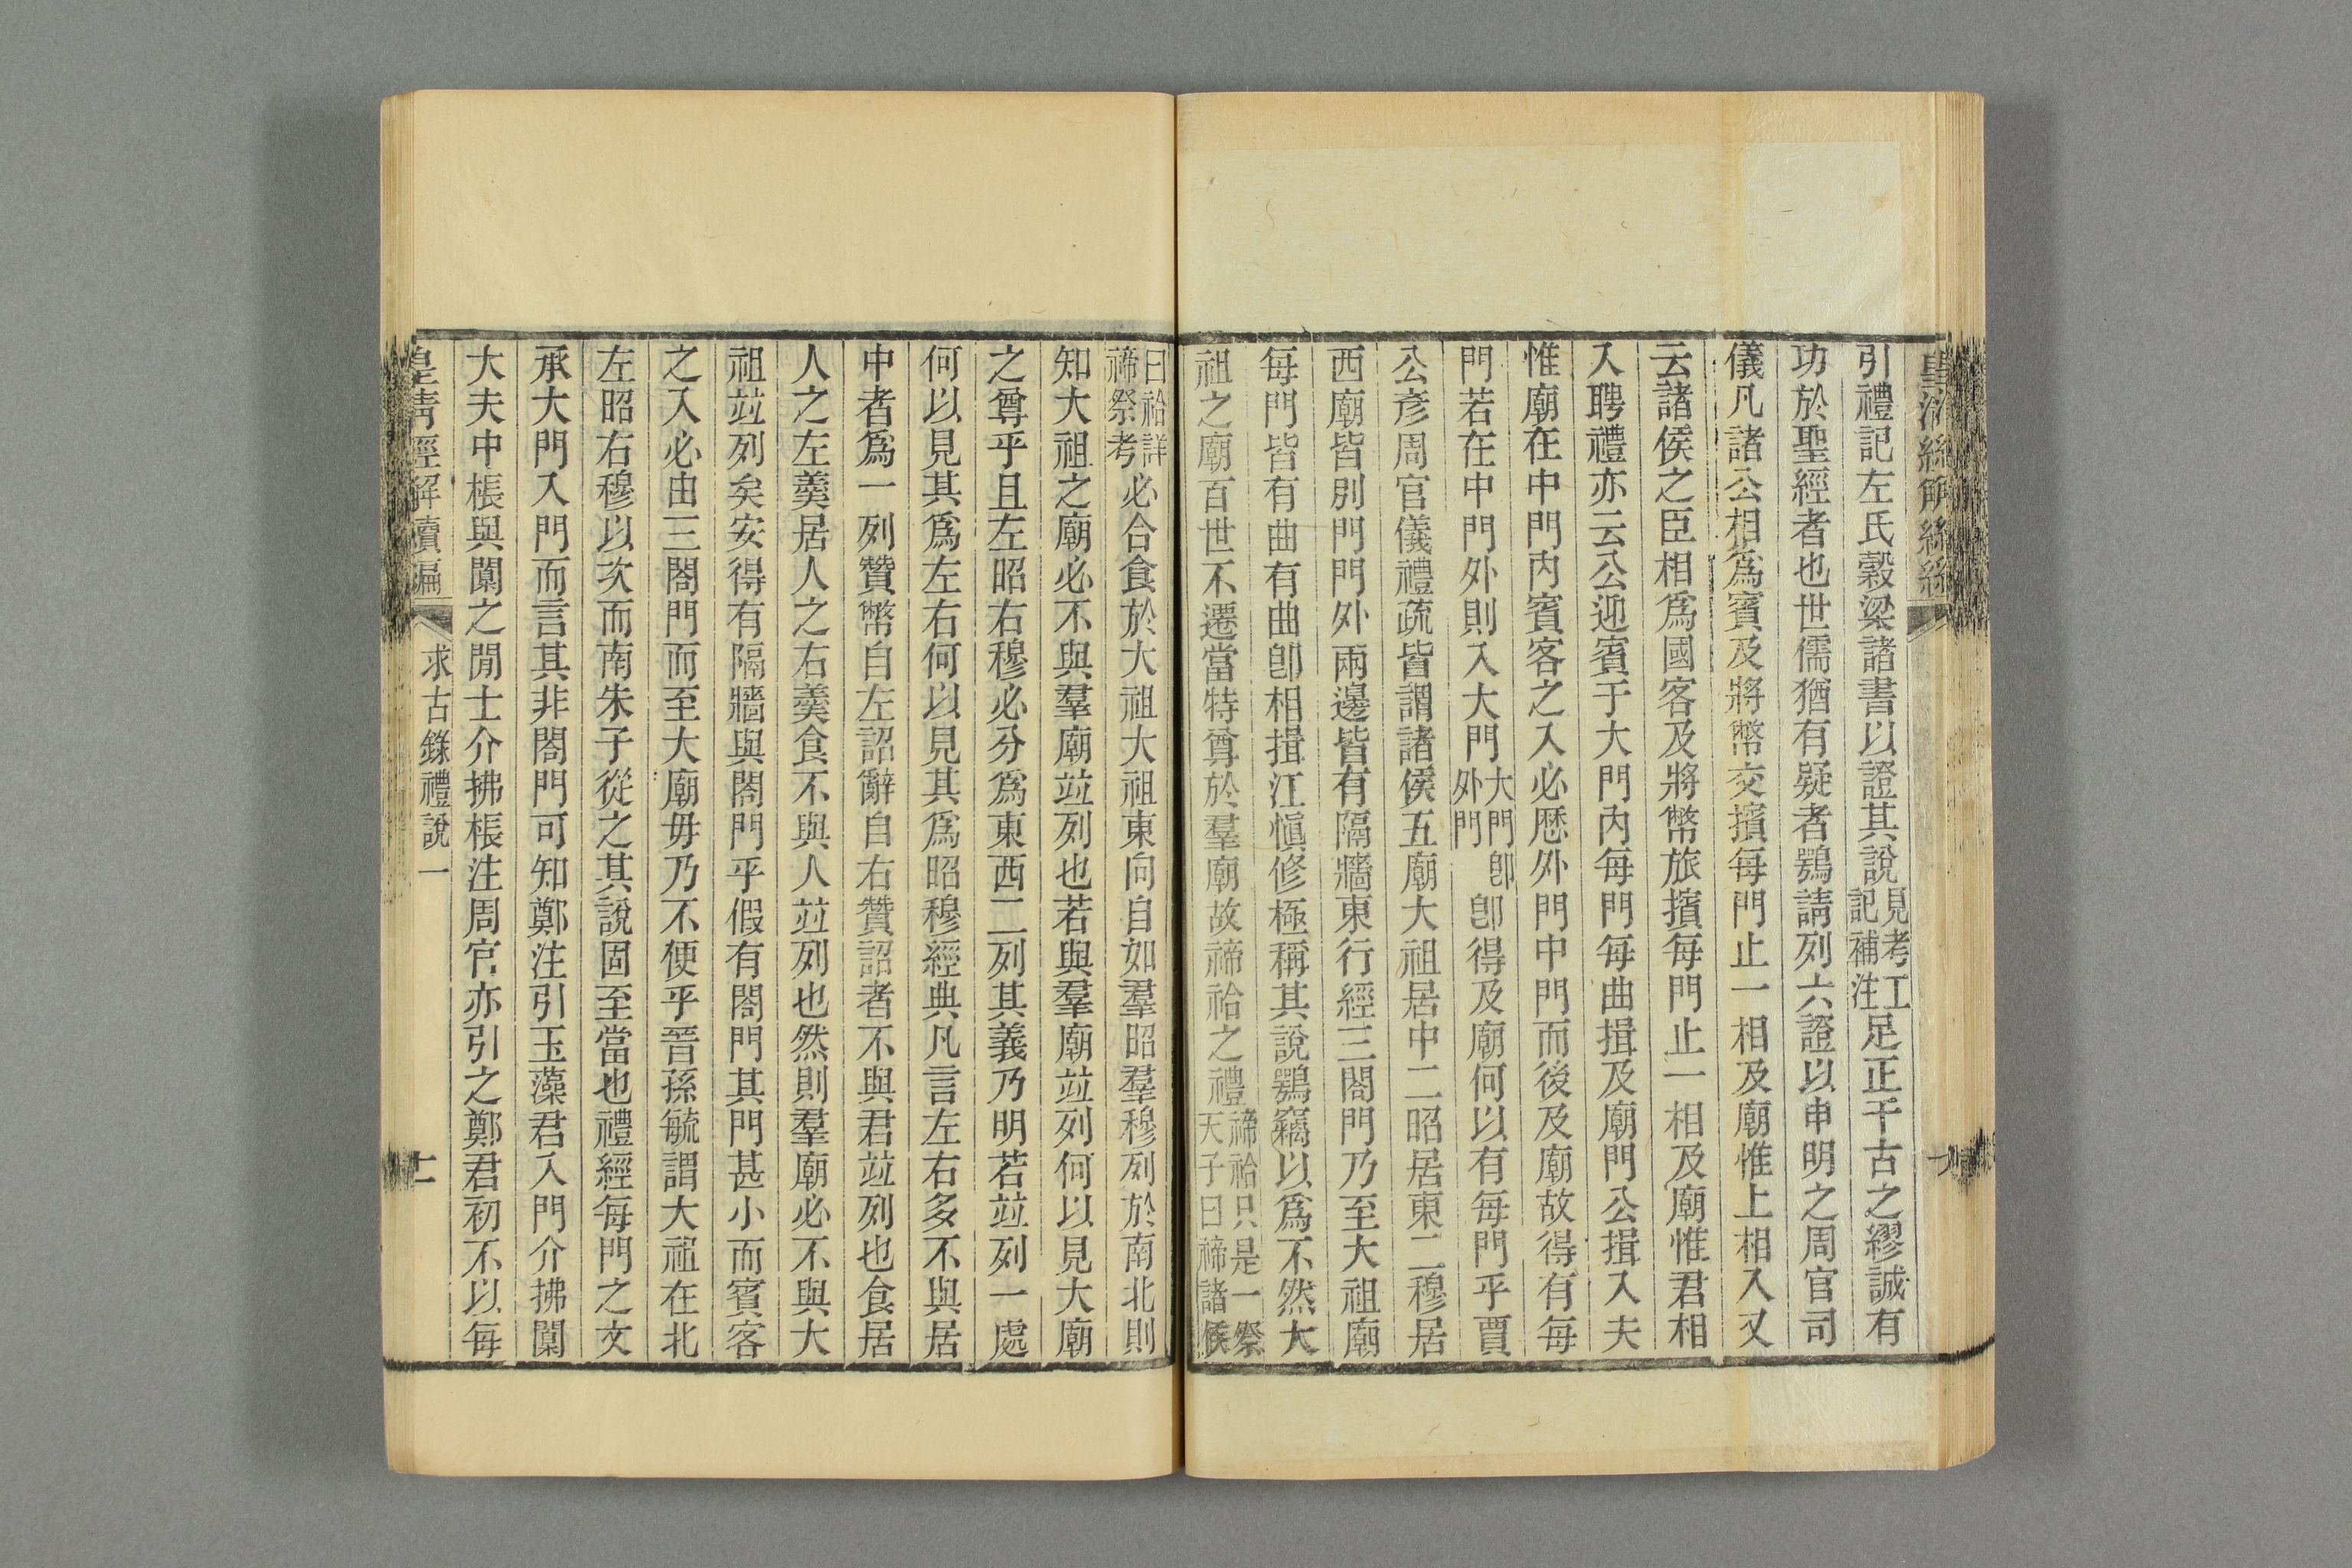 引禮記左氏穀梁諸書以證其說見考工記補注足正千古之繆誠有
功於聖經者也世儒猶有疑者鶚請列六證以申明之周官司
儀凡諸公相爲賓及將幣交擯每門止一相及廟惟上相入又
云諸侯之臣相爲國客及將幣旅擯每門止一相及廟惟君相
入聘禮亦云公迎賓于大門內每門每曲揖及廟門公揖入夫
惟廟在中門內賓客之入必歷外門中門而後及廟故得有每
門若在中門外則入大門大門卽外門卽得及廟何以有每門乎賈
公彥周官儀禮疏皆謂諸侯五廟大祖居中二昭居東二穆居
西廟皆別門門外兩邊皆有隔牆東行經三閤門乃至大祖廟
每門皆有曲有曲卽相揖江愼修極稱其說鶚竊以爲不然大
祖之廟百世不遷當特尊於羣廟故禘祫之禮禘祫只是一祭天子曰禘諸侯
曰祫詳禘祭考必合食於大祖大祖東向自如羣昭羣穆列於南北則
知大祖之廟必不與羣廟竝列也若與羣廟竝列何以見大廟
之尊乎且左昭右穆必分爲東西二列其義乃明若竝列一處
何以見其爲左右何以見其爲昭穆經典凡言左右多不與居
中者爲一列贊幣自左詔辭自右贊詔者不與君竝列也食居
人之左羹居人之右羹食不與人竝列也然則羣廟必不與大
祖竝列矣安得有隔牆與閤門乎假有閤門其門甚小而賓客
之入必由三閤門而至大廟毋乃不便乎晉孫毓謂大祖在北
左昭右穆以次而南朱子從之其說固至當也禮經每門之文
承大門入門而言其非閤門可知鄭注引玉藻君入門介拂闑
大夫中棖與闑之閒士介拂棖注周官亦引之鄭君初不以每
皇淸經解續編
求古錄禮說一